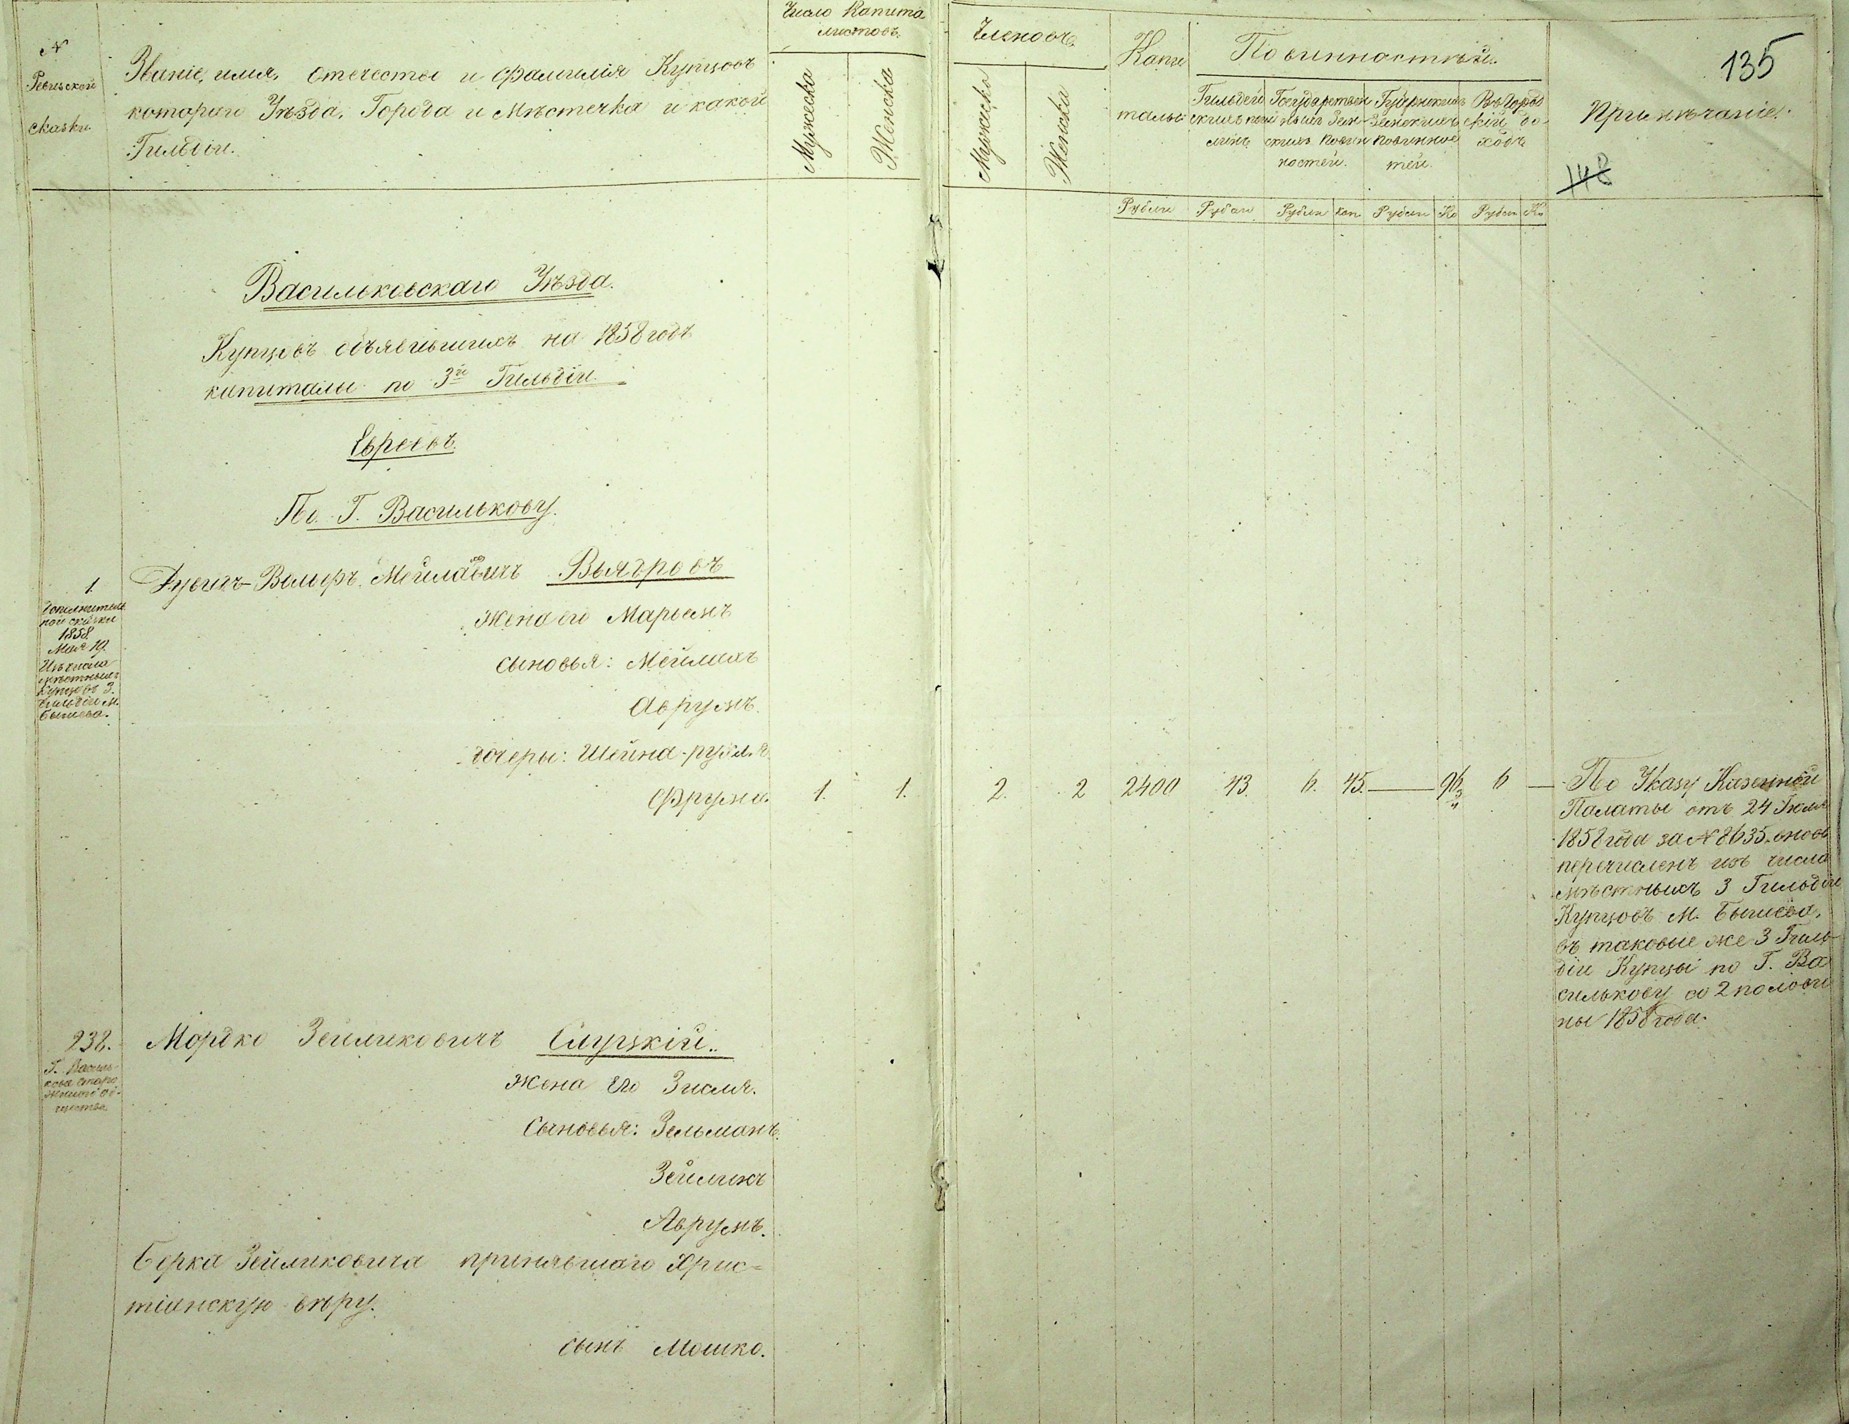 №
Ревизской
сказки.
Званіе, имя, отечество и фамилія Купцовъ
котораго Уѣзда, Города и Мѣстечка и какой
Гильдіи.
Число Капита
листовъ.
Мужеска
Женска
Членовъ.
Мужеска
Женска
Капи
талы
Повинностей.
Гильдей
Государствен
Губернскихъ
Земскихъ
повинно
стей.
Въ Город
скій до-
ходъ
Примѣчаніе.
135
148
Рубли Рубли Рубли Коп Рубли Ко Рубли Ко
Васильковскаго Уѣзда.
Купцовъ объявившихъ на 1858 годъ
капиталы по 3й Гильдіи
Евреевъ.
По Г. Василькову.
1.
Дополнитель
ной сказки
1858
Мая 19
Изъ числа
мѣстныхъ
Купцовъ 3.
Гильдіи М.
Бышева.
Вольфъ Мейлаховичъ
Жена его Марьемъ
сыновья: Мейлахъ
Аврумъ.
дочеры: Шейна-рухля
Фрума. 1. 1. 2. 2 2400 43. 6. 45. 96 6
По Указу Казенной
Палаты отъ 24 Іюля
1858 года за № 8635 вновь
перечисленъ изъ числа
мѣстныхъ 3 Гильдіи
Купцовъ М. Бышева,
въ таковые же 3 Гиль-
діи Купцы по Г. Ва
силькову со 2 полови
ны 1858 года.
238.
Г. Василь-
кова старо
жилого об-
щества.
Мордко Зейликовичъ Слуцкій.
Жена Его Зисля.
Сыновья: Зельманъ.
Зейликъ
Аврумъ.
Берка Зейликовича принявшаго Хрис=
тіанскую вѣру.
сынъ Мошко.